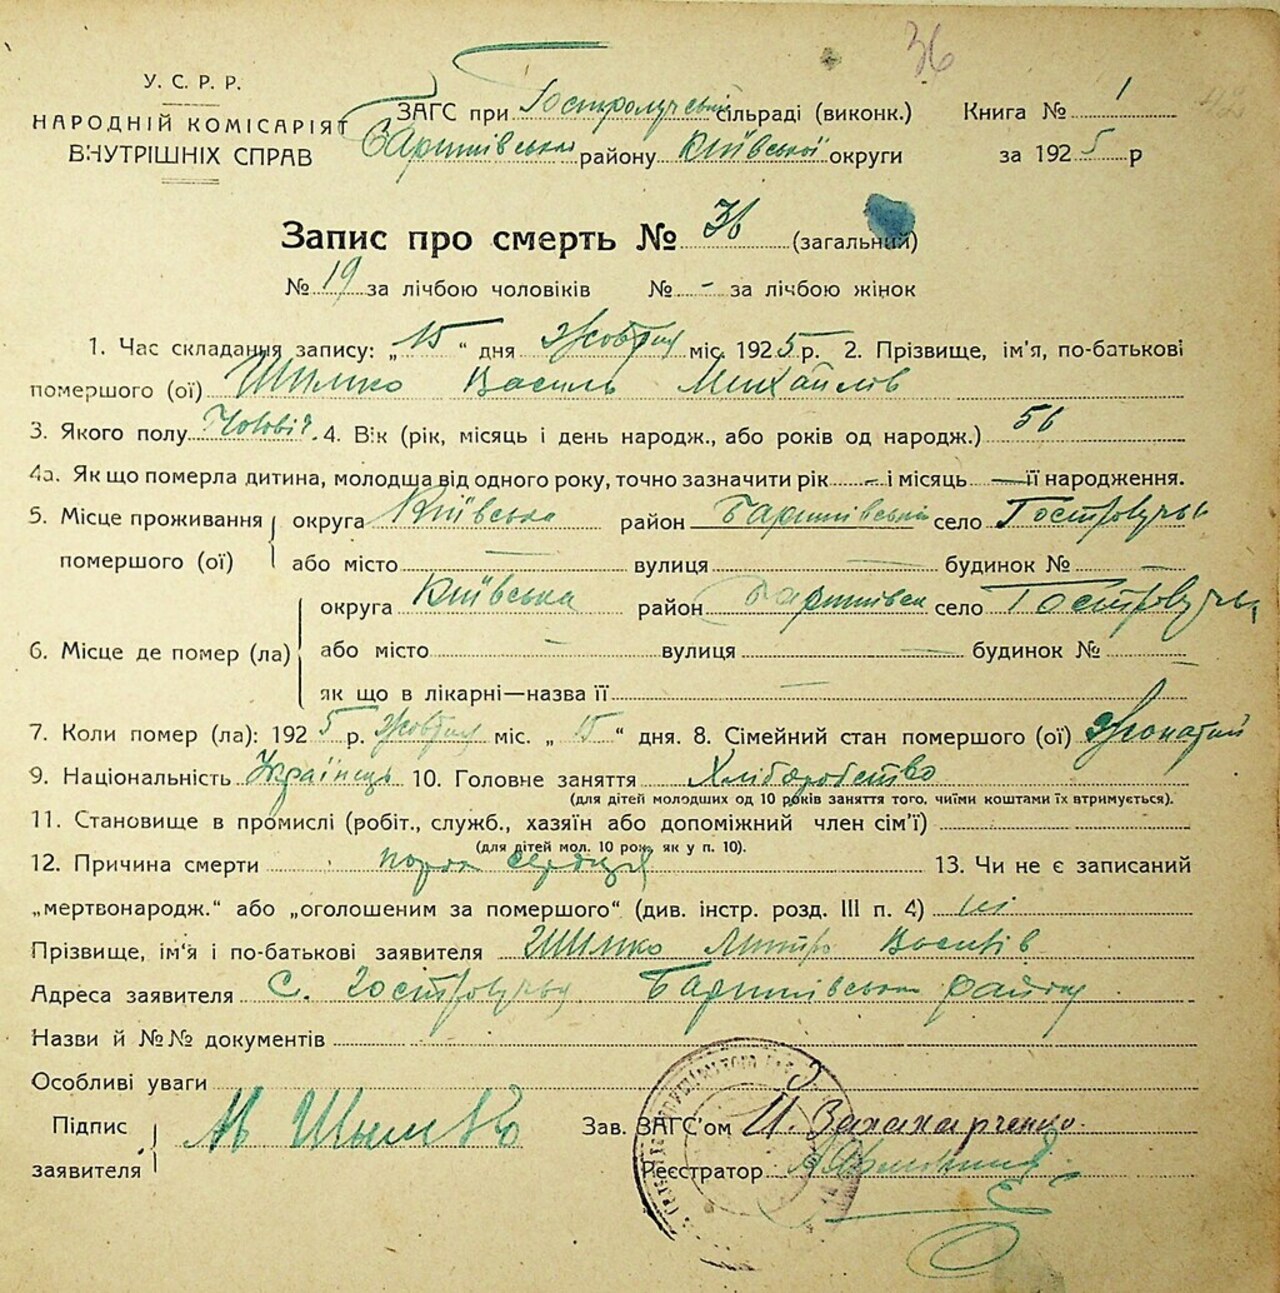 36
У. С. Р. Р.
НАРОДНІЙ КОМІСАРІЯТ
ВНУТРІШНІХ СПРАВ
ЗАГС при Гостролучській сільраді (виконк.) Книга № 1
Баришівськ району Київської округи за 1925 р
Запис про смерть № 36 (загальний)
№ 19 за лічбою чоловіків № - за лічбою жінок
1. Час складання запису: „15“ дня Жовтня міс. 1925 р. 2. Прізвище, ім'я, по-батькові
помершого (ої) Шимко Василь Михайлів
3. Якого полу Чоловіч. 4. Вік (рік, місяць і день народж., або років од народж.) 56
4а. Як що померла дитина, молодша від одного року, точно зазначити рік — і місяць — її народження.
5. Місце проживання округа Київська район Баришівський село Гостролучьє
помершого (ої) або місто — вулиця — будинок № —
округа Київська район Баришівськ село Гостролучьє
6. Місце де помер (ла) або місто — вулиця — будинок № —
як що в лікарні—назва її —
7. Коли помер (ла): 1925 р. Жовтня міс. „15“ дня. 8. Сімейний стан помершого (ої) Жонатий
9. Національність Українець 10. Головне заняття Хліборобство
(для дітей молодших од 10 років заняття того, чиїми коштами їх втримується).
11. Становище в промислі (робіт., служб., хазяїн або допоміжний член сім'ї)
(для дітей мол. 10 рок. як у п. 10).
12. Причина смерти порок сердця 13. Чи не є записаний
„мертвонародж.“ або „оголошеним за помершого“ (див. інстр. розд. III п. 4) ні
Прізвище, ім'я і по-батькові заявителя Шимко Митро Василів
Адреса заявителя С. Гостролучья Баришівськ району
Назви й №№ документів
Особливі уваги
Підпис
заявителя
Шымко
Зав. ЗАГС'ом И. Захахарченко
Реєстратор